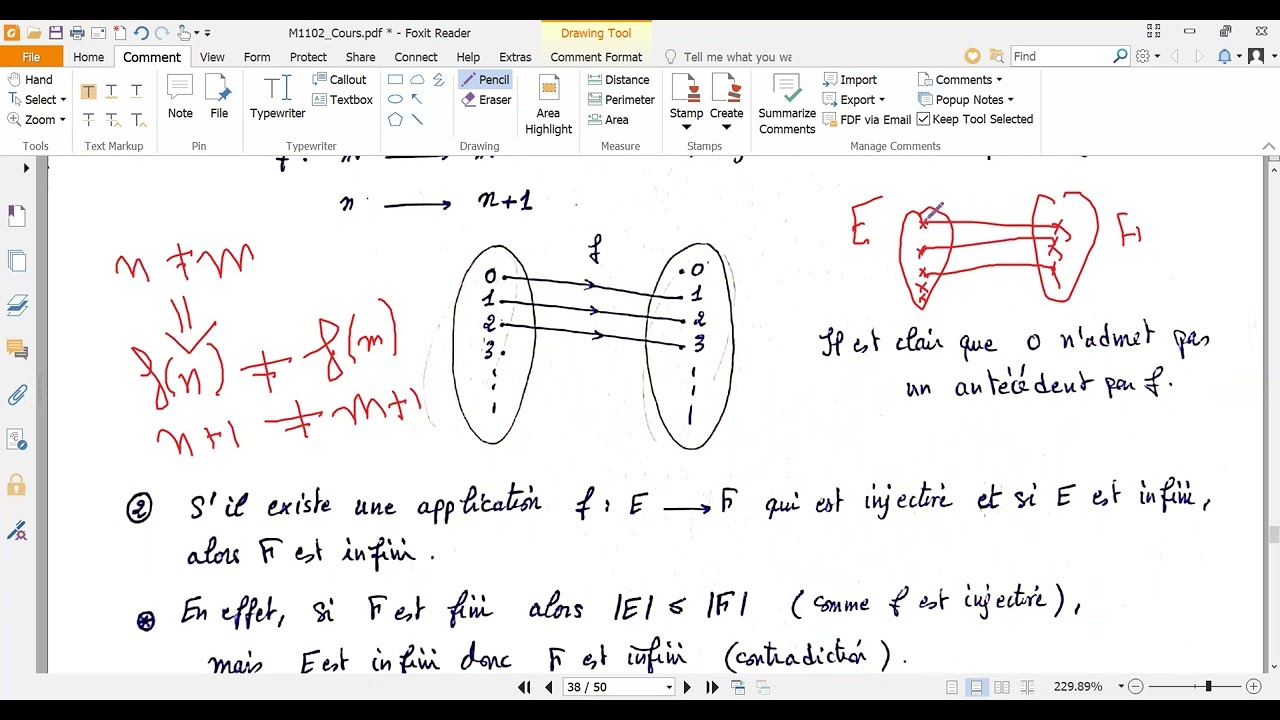 M1102_Cours.pdf * - Foxit Reader
Drawing Tool
File Home Comment View Form Protect Share Connect Help Extras Comment Format Tell me what you wa Find
Hand
Select
Zoom
Tools
T T T
T T T
Text Markup
Note
File
Pin
Typewriter
Callout
Textbox
Typewriter
Pencil
Eraser
Drawing
Area
Highlight
Distance
Perimeter
Area
Measure
Stamp
Create
Stamps
Summarize
Comments
Import
Export
FDF via Email
Comments
Popup Notes
Keep Tool Selected
Manage Comments
n → n+1
n ≠ m
⇓
f(n) ≠ f(m)
n+1 ≠ m+1
f
0 0
1 1
2 2
3 3
E F
Il est clair que 0 n'admet pas
un antécédent par f.
② S'il existe une application f : E → F qui est injective et si E est infini,
alors F est infini.
En effet, si F est fini alors |E| ≤ |F| (comme f est injective),
mais E est infini donc F est infini (contradiction).
38 / 50
229.89%